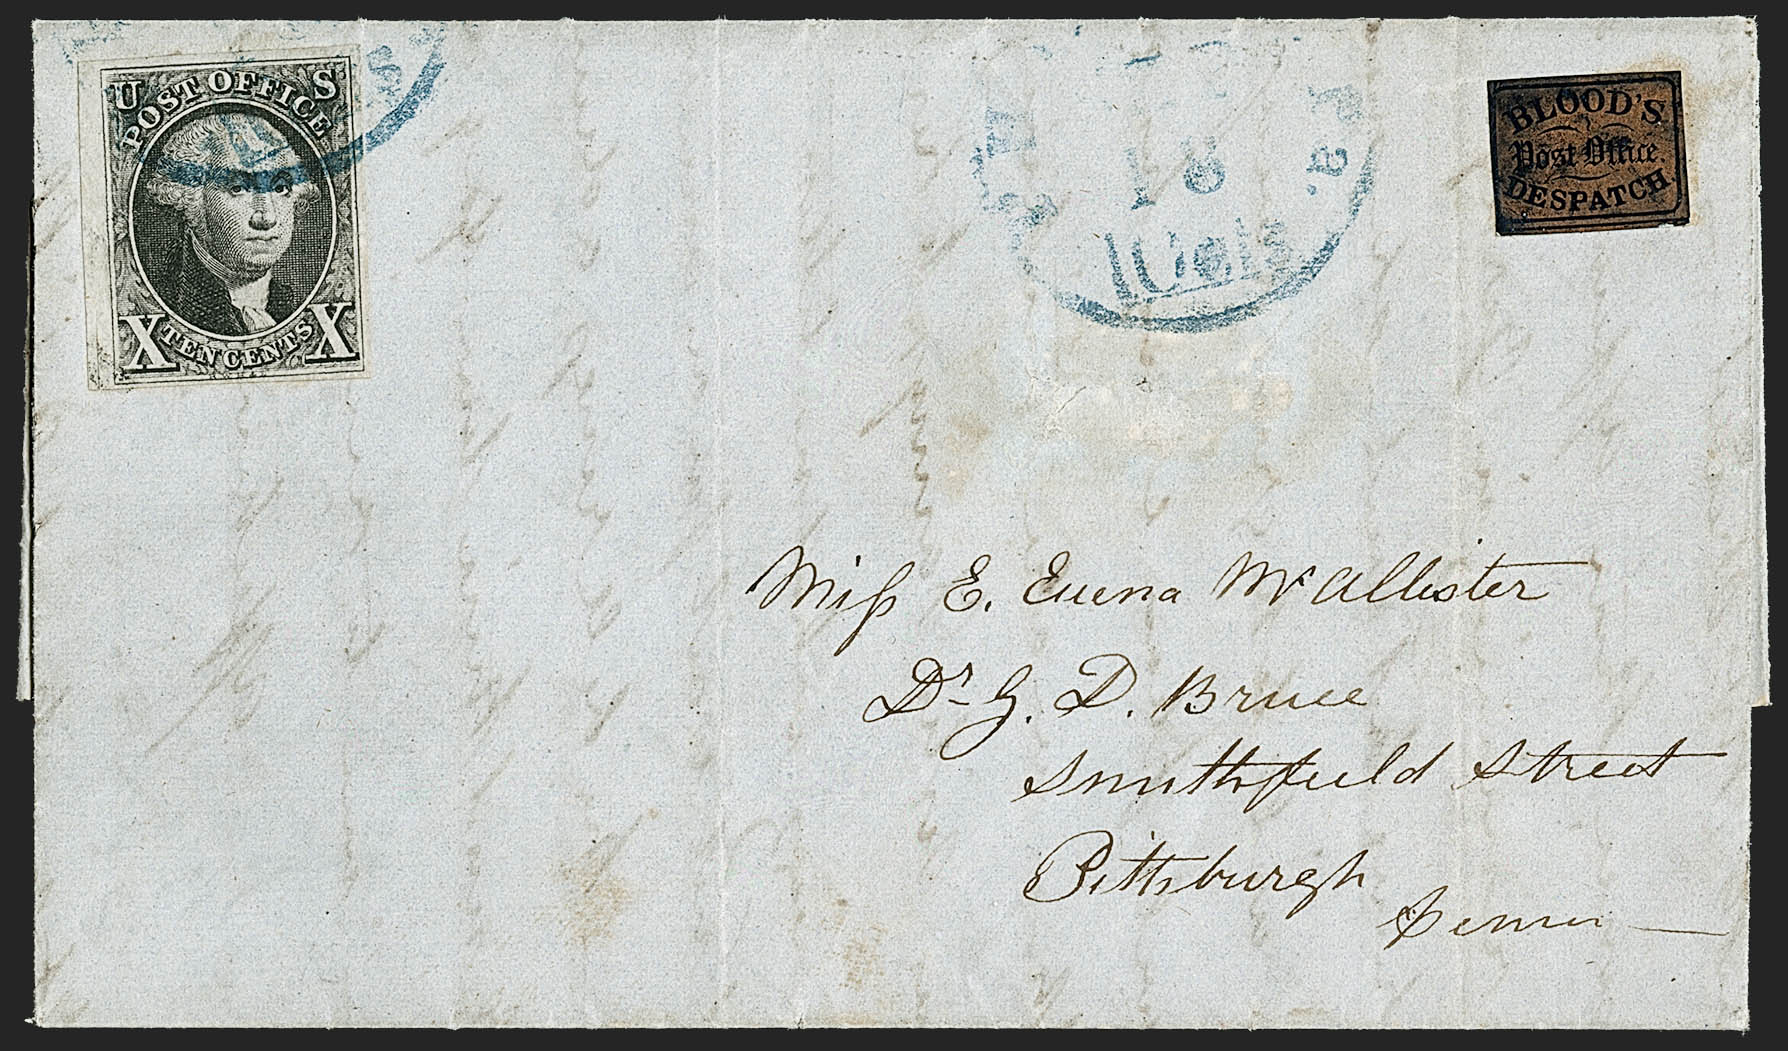 U S
POST OFFICE
X TEN CENTS X
18
10cts
Pa.
BLOOD'S
Post Office.
DESPATCH
Miss E. Euena McAllister
Dr G. D. Bruce
Smithfield Street
Pittsburgh
Penna